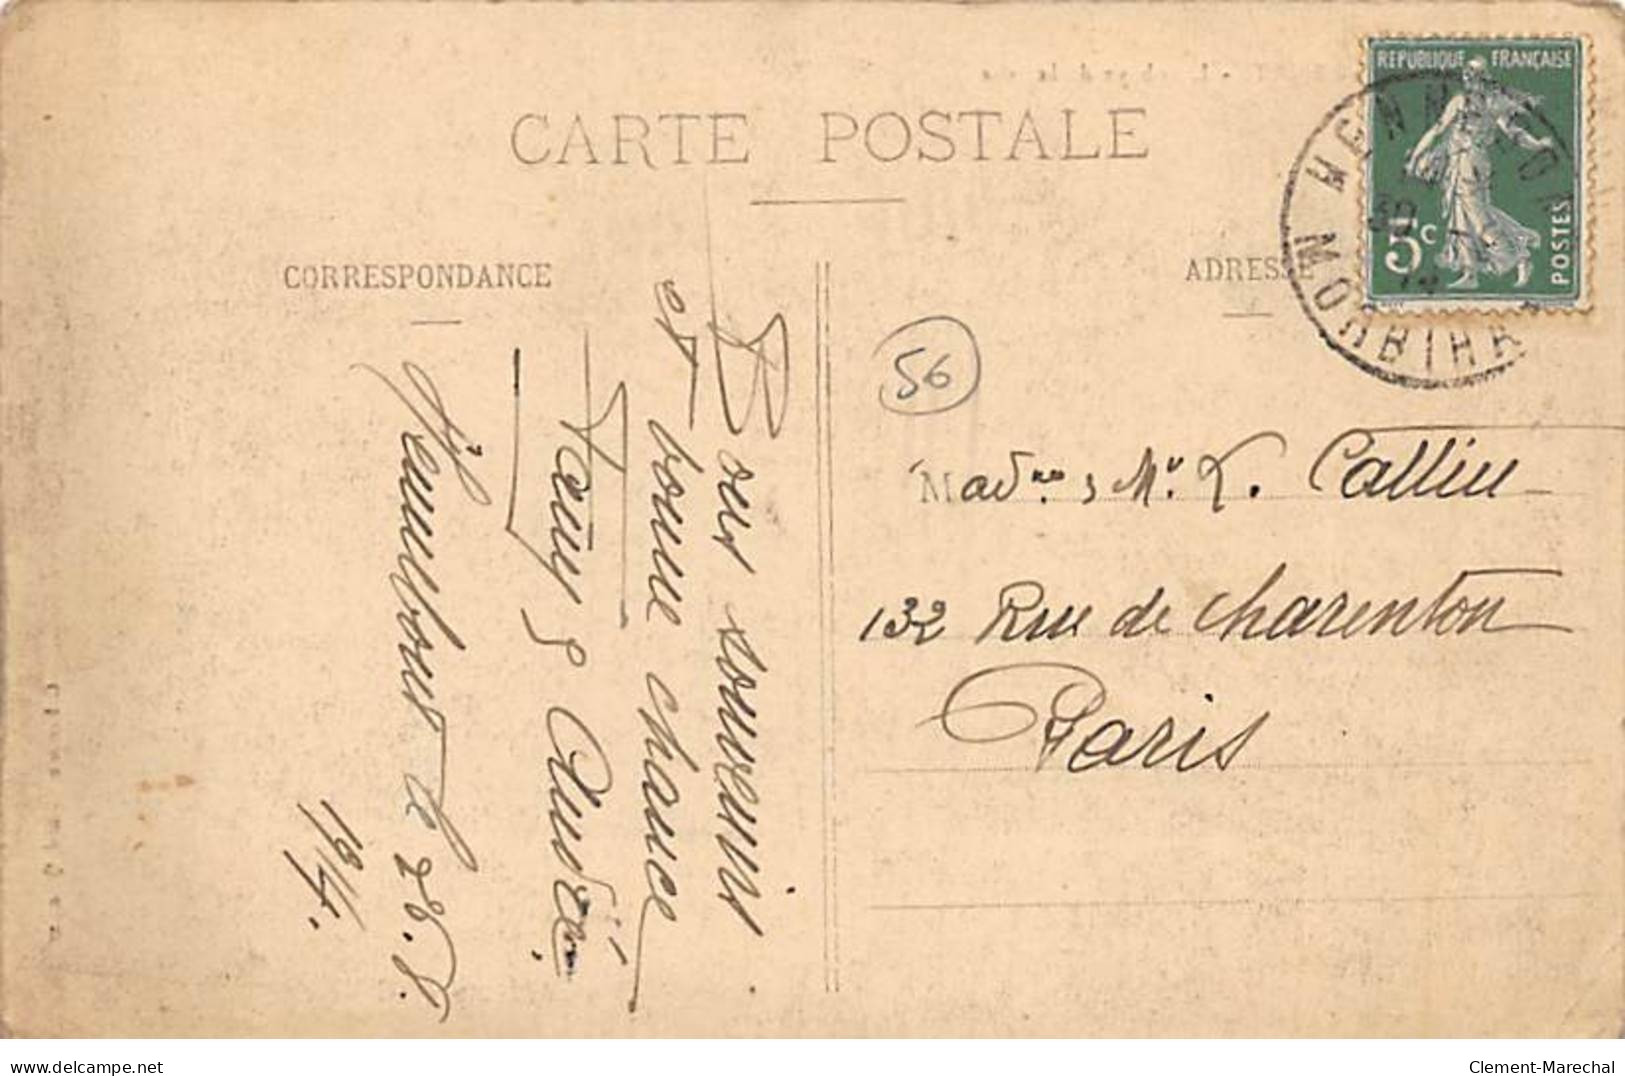 CARTE POSTALE
CORRESPONDANCE
ADRESSE
REPUBLIQUE FRANÇAISE
POSTES
5c
HENNEBONT
MORBIHAN
30
14
56
Bons souvenirs
et bonne chance
Fany & André
Hennebont le 28.8.
1914.
Mad.me & Mr. L. Callin
132 Rue de Charenton
Paris
delcampe.net
Clement-Marechal